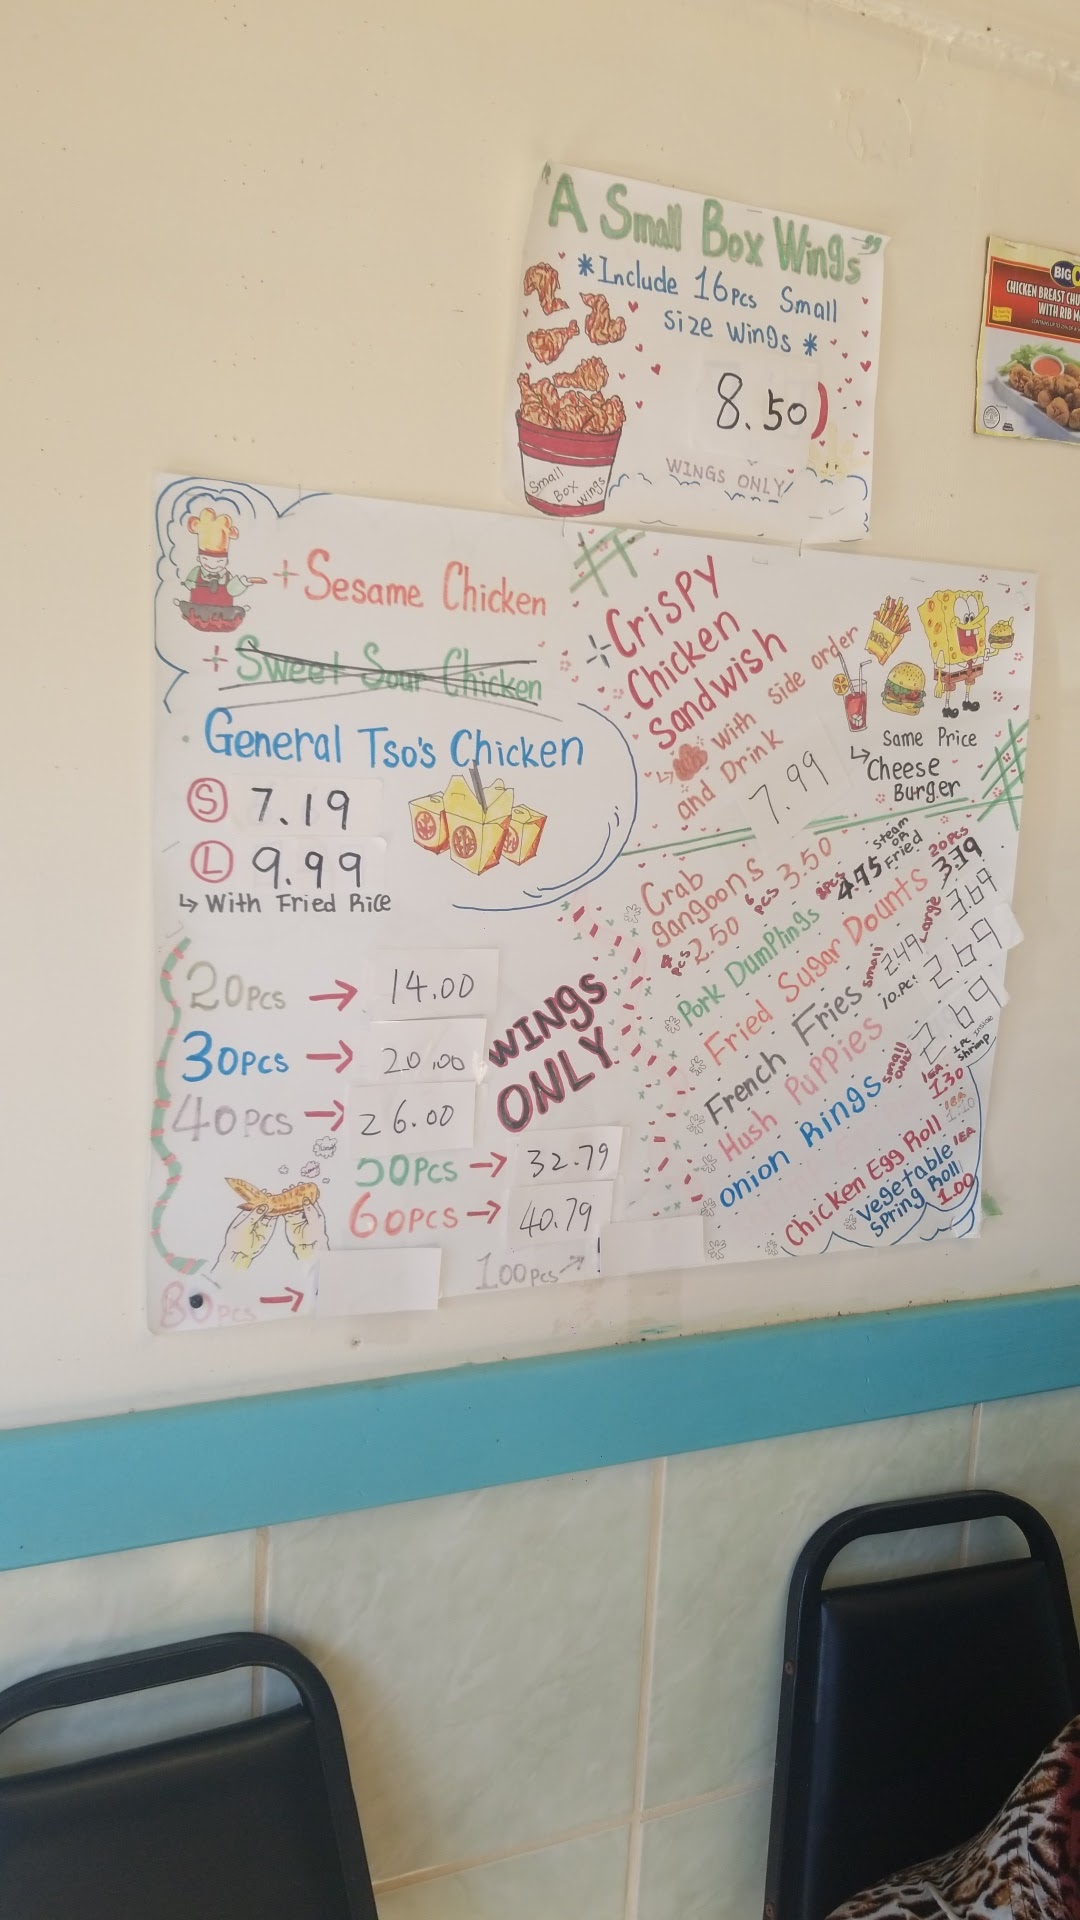 "A Small Box Wings"
*Include 16pcs Small
size wings *
8.50)
WINGS ONLY
Small
Box
Wings
BIG
CHICKEN BREAST CHU
WITH RIB M
+ Sesame Chicken
+ Sweet Sour Chicken
General Tso's Chicken
S 7.19
L 9.99
↳ With Fried Rice
20pcs → 14.00
30pcs → 20.00
40pcs → 26.00
50pcs → 32.79
60pcs → 40.79
80pcs →
100pcs →
WINGS
ONLY
Crispy
Chicken
Sandwish
↳ with side order
and Drink
7.99
Same Price
↳ Cheese
Burger
Crab
gangoons 6 pcs 3.50
4 pcs 2.50
Pork Dumplings 8pcs 4.75 steam or Fried
Fried Sugar Dounts 20pcs 3.39
French Fries small 2.49 Large 3.69
Hush Puppies 10.pc: 2.69
onion Rings small only 2.69
1 PC inside shrimp
Chicken Egg Roll 1EA 1.30
1EA 1.10
vegetable
spring Roll 1EA 1.00